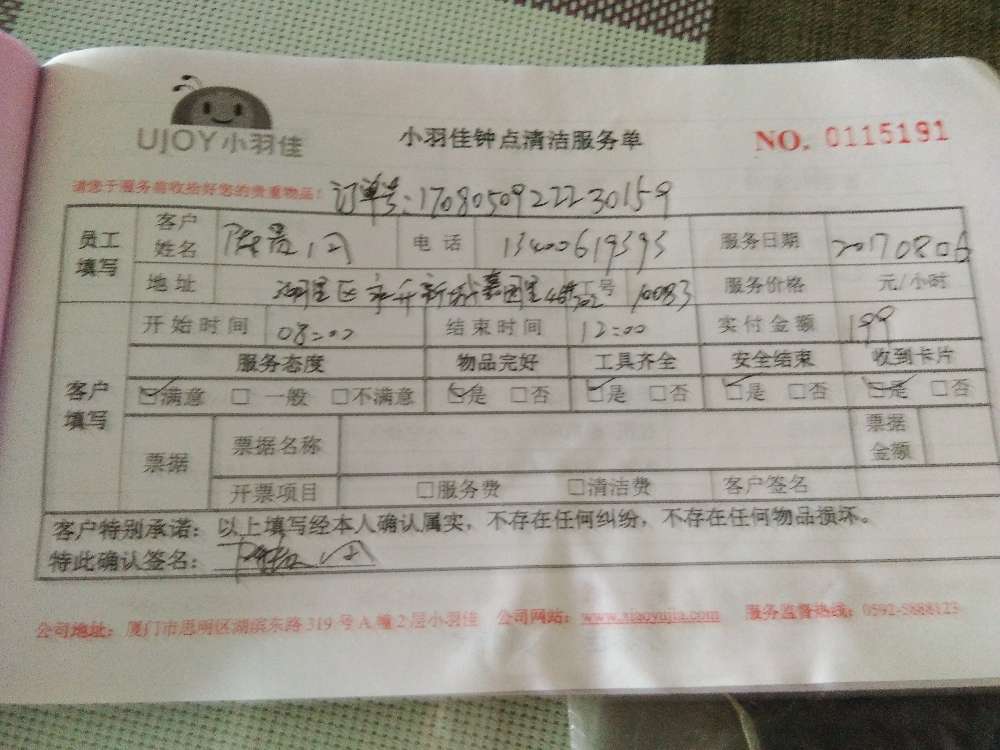 UJOY小羽佳
小羽佳钟点清洁服务单
NO. 0115191
请您于服务前收拾好您的贵重物品!
订单号:17080509222230159
员工填写 客户姓名 陈 电话 13400619393 服务日期 20170806
地址 湖里区 新 里 工号 10083 服务价格 元/小时
开始时间 08:00 结束时间 12:00 实付金额 199
客户填写 服务态度 物品完好 工具齐全 安全结束 收到卡片
满意 一般 不满意 是 否 是 否 是 否 是 否
票据 票据名称 票据金额
开票项目 服务费 清洁费 客户签名
客户特别承诺:以上填写经本人确认属实,不存在任何纠纷,不存在任何物品损坏。
特此确认签名:
公司地址:厦门市思明区湖滨东路319号A幢2层小羽佳 公司网站:www.xiaoyujia.com 服务监督热线:0592-5888123